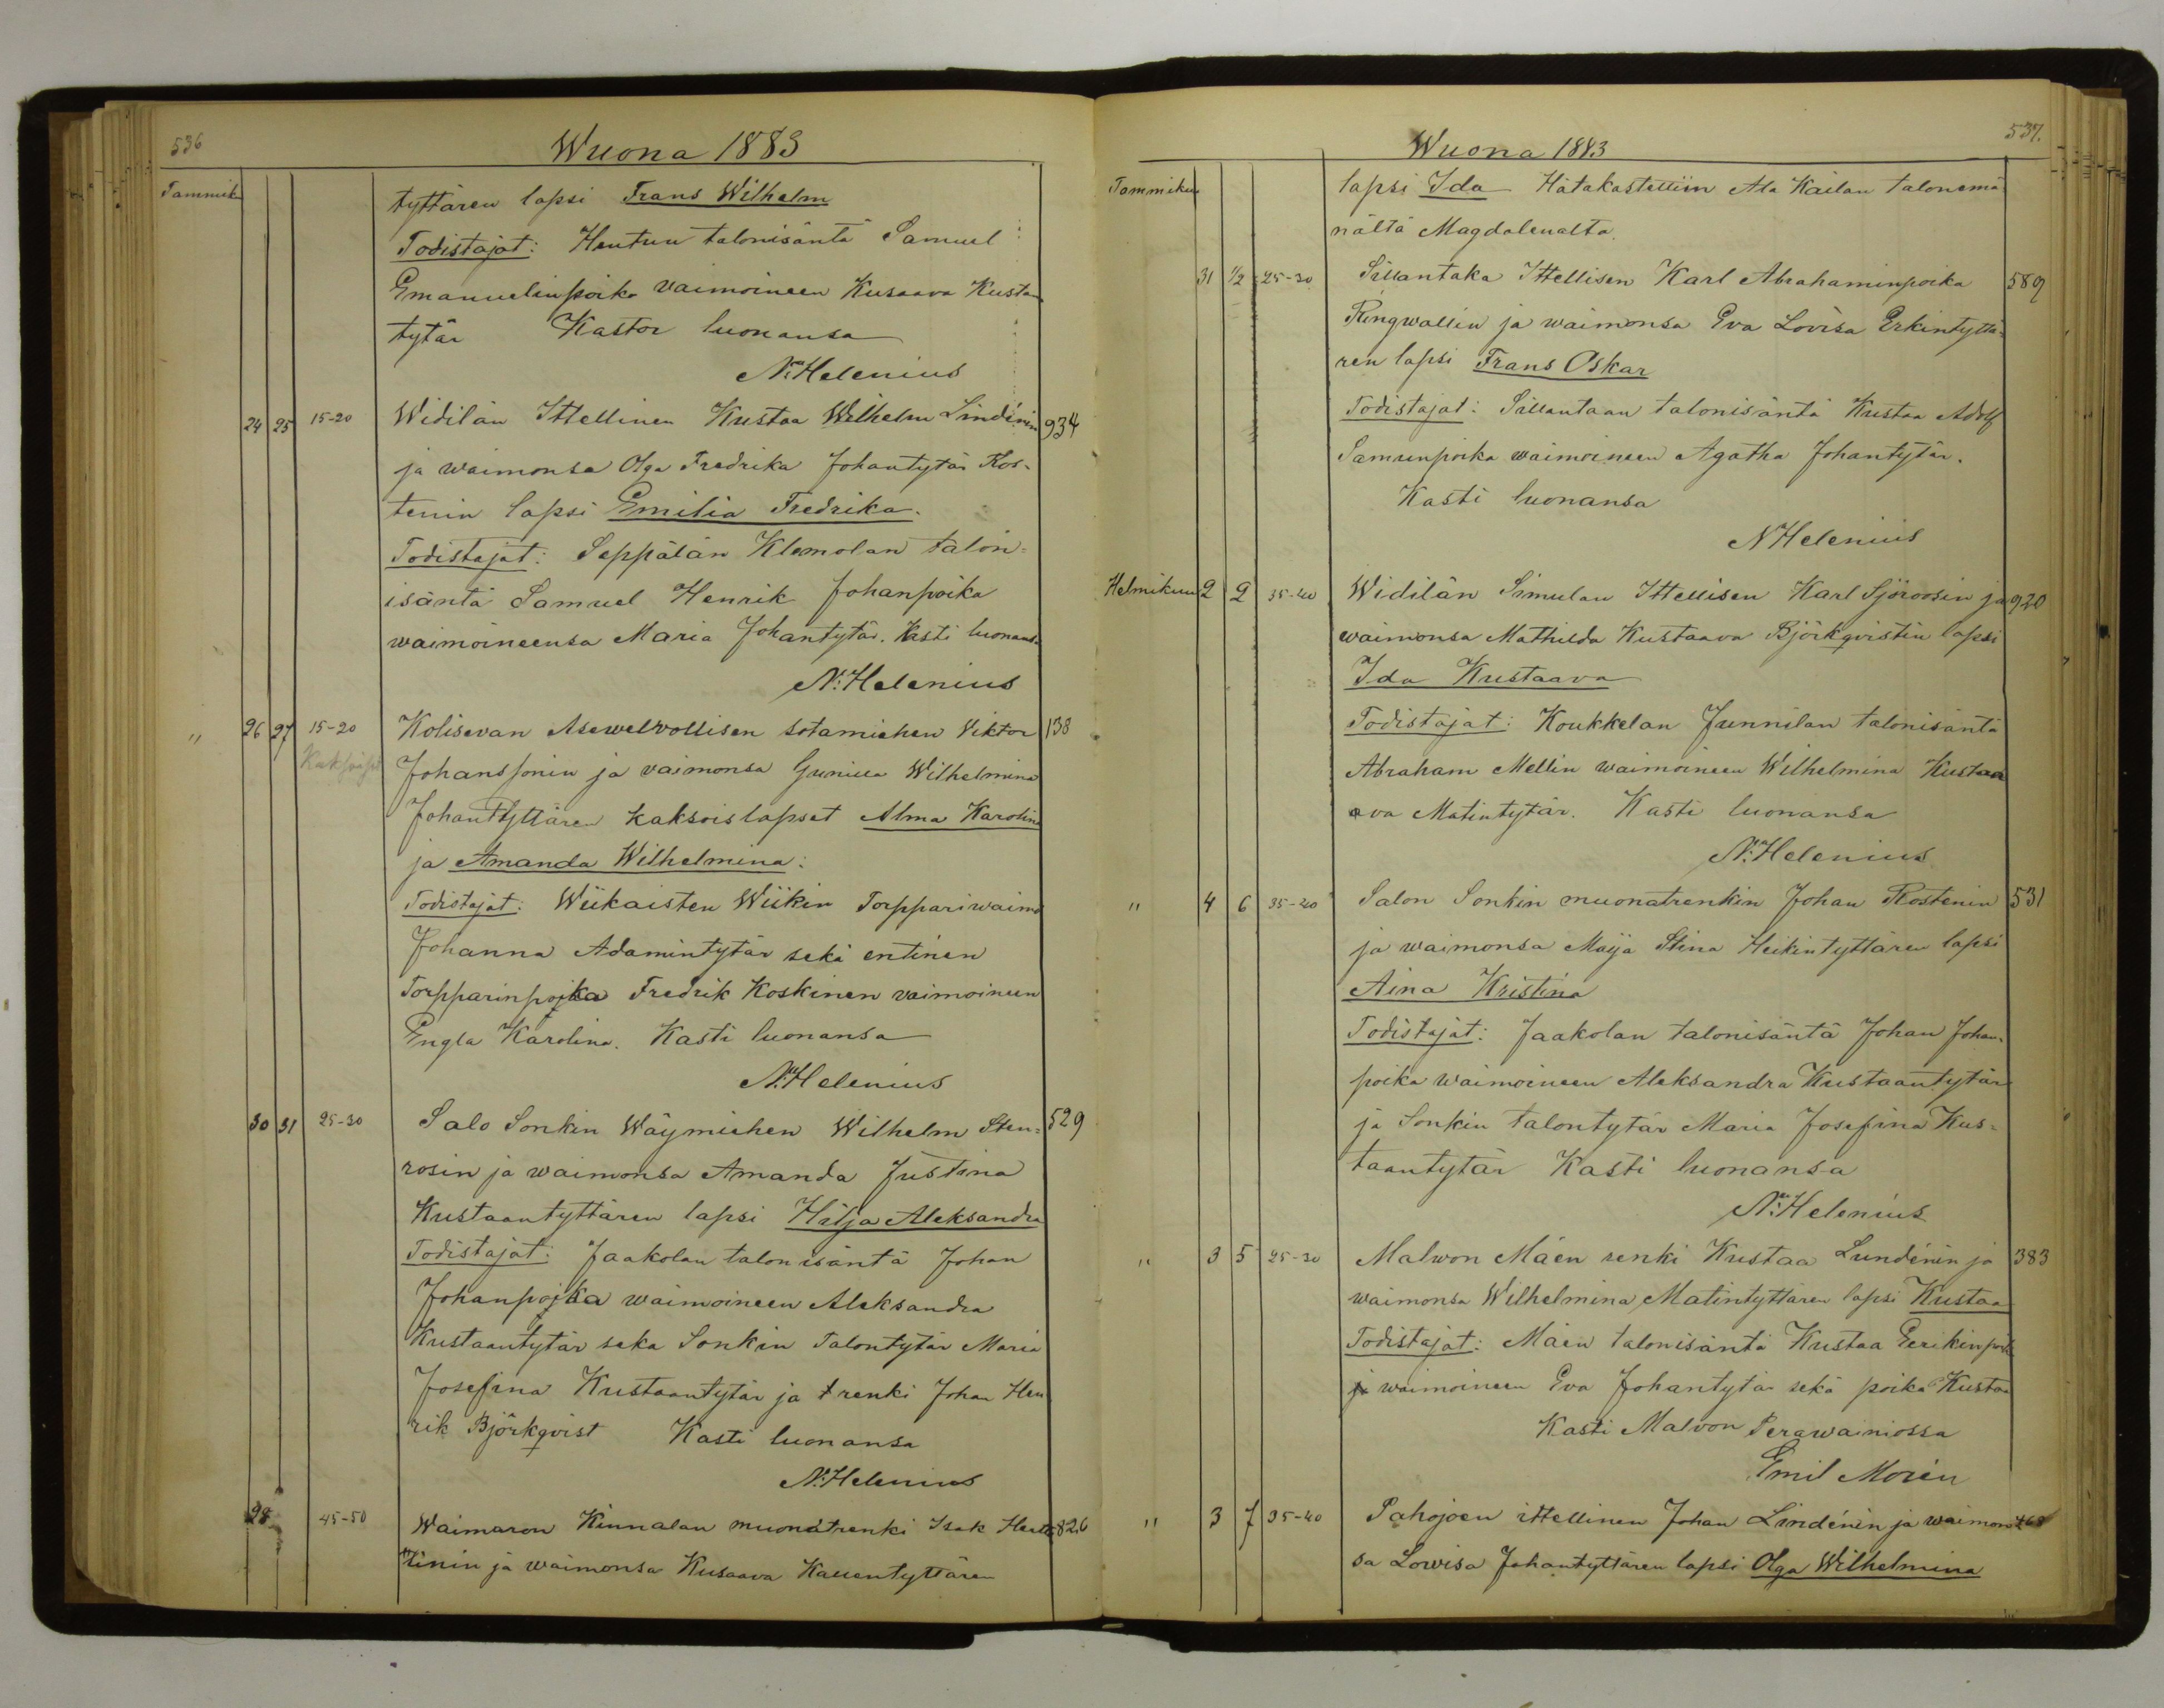 536
Wuona 1883
Tammik
tyttären lapsi Frans Wilhelm
Todistajat: Hentun talonisäntä Samuel
Emanuelinpoika vaimoineen Kusaava Kusta
tytär Kastoi luonansa
N. Helenius
24 25 15-20 Widilän Ittellinen Kustaa Wilhelm Lindénin 934
ja waimonsa Olga Fredrika Johantytär Ros-
tenin lapsi Emilia Fredrika.
Todistajat: Seppälän Klemolan talon=
isäntä Samuel Henrik Johanpoika
waimoineensa Maria Johantytär. Kasti luonansa
N: Helenius
" 26 27 15-20 Kolisevan Asewelvollisen sotamiehen Viktor 138
Johanssonin ja vaimonsa Gunilla Wilhelmina
Johantyttären kaksoislapset Alma Karolina
ja Amanda Wilhelmina:
Todistajat: Wiikaisten Wiikin Torppariwaimo
Johanna Adamintytär sekä entinen
Torpparinpojka Fredrik Koskinen vaimoineen
Engla Karolina. Kasti luonansa
N: Helenius
30 31 25-30 Salo Sonkin Wäymiehen Wilhelm Sten= 529
rosin ja waimonsa Amanda Justina
Kustaantyttären lapsi Hilja Aleksandra
Todistajat: Jaakolan talonisäntä Johan
Johanpojka waimoineen Aleksandra
Kustaantytär seka Sonkin Talontytär Maria
Josefina Kustaantytär ja renki Johan Hen
rik Björkqvist Kasti luonansa
N: Helenius
28 45-50 Waimaron Kinnalan muonatrenki Isak 826
tinin ja waimonsa Kusaava Kallentyttären
537.
Wuona 1883
Tammikuu lapsi Ida Hätakastettiin Ala Kailan talonemä
nältä Magdalenalta.
31 1/2 25-30 Sillantaka Ittellisen Karl Abrahaminpoika 589
Ringwallin ja waimonsa Eva Lovisa Erkintyttä=
ren lapsi Frans Oskar
Todistajat: Sillantaan talonisäntä Kustaa Adolf
Samunpoika waimoineen Agatha Johantytär.
Kasti luonansa
N Helenius
Helmikuu 2 2 35-40 Widilän Simulan Ittellisen Karl Sjöroosin ja 920
waimonsa Mathilda Kustaava Björkqvistin lapsi
Ida Kustaava
Todistajat: Koukkelan Junnilan talonisäntä
Abraham Mellin waimoineen Wilhelmina Kustaa
ava Matintytär. Kasti luonansa
N: Helenius
" 4 6 35-40 Salon Sonkin muonatrenkin Johan Rostenin 531
ja waimonsa Maija Stina Heikintyttären lapsi
Aina Kristina
Todistajat: Jaakolan talonisäntä Johan Johan-
poika waimoineen Aleksandra Kustaantytär
ja Sonkin talontytär Maria Josefina Kus=
taantytär Kasti luonansa
N: Helenius
" 3 5 25-30 Malwon Mäen renki Kustaa Lundénin ja 383
waimonsa Wilhelmina Matintyttären lapsi Kustaa
Todistajat: Mäen talonisäntä Kustaa Eerikinpoik
waimoineen Eva Johantytär sekä poika Kustaa
Kasti Malvon Perawainiossa
Emil Morén
" 3 7 35-40 Pahojoen ittellinen Johan Lindénin ja waimon
sa Lowisa Johantyttären lapsi Olga Wilhelmina